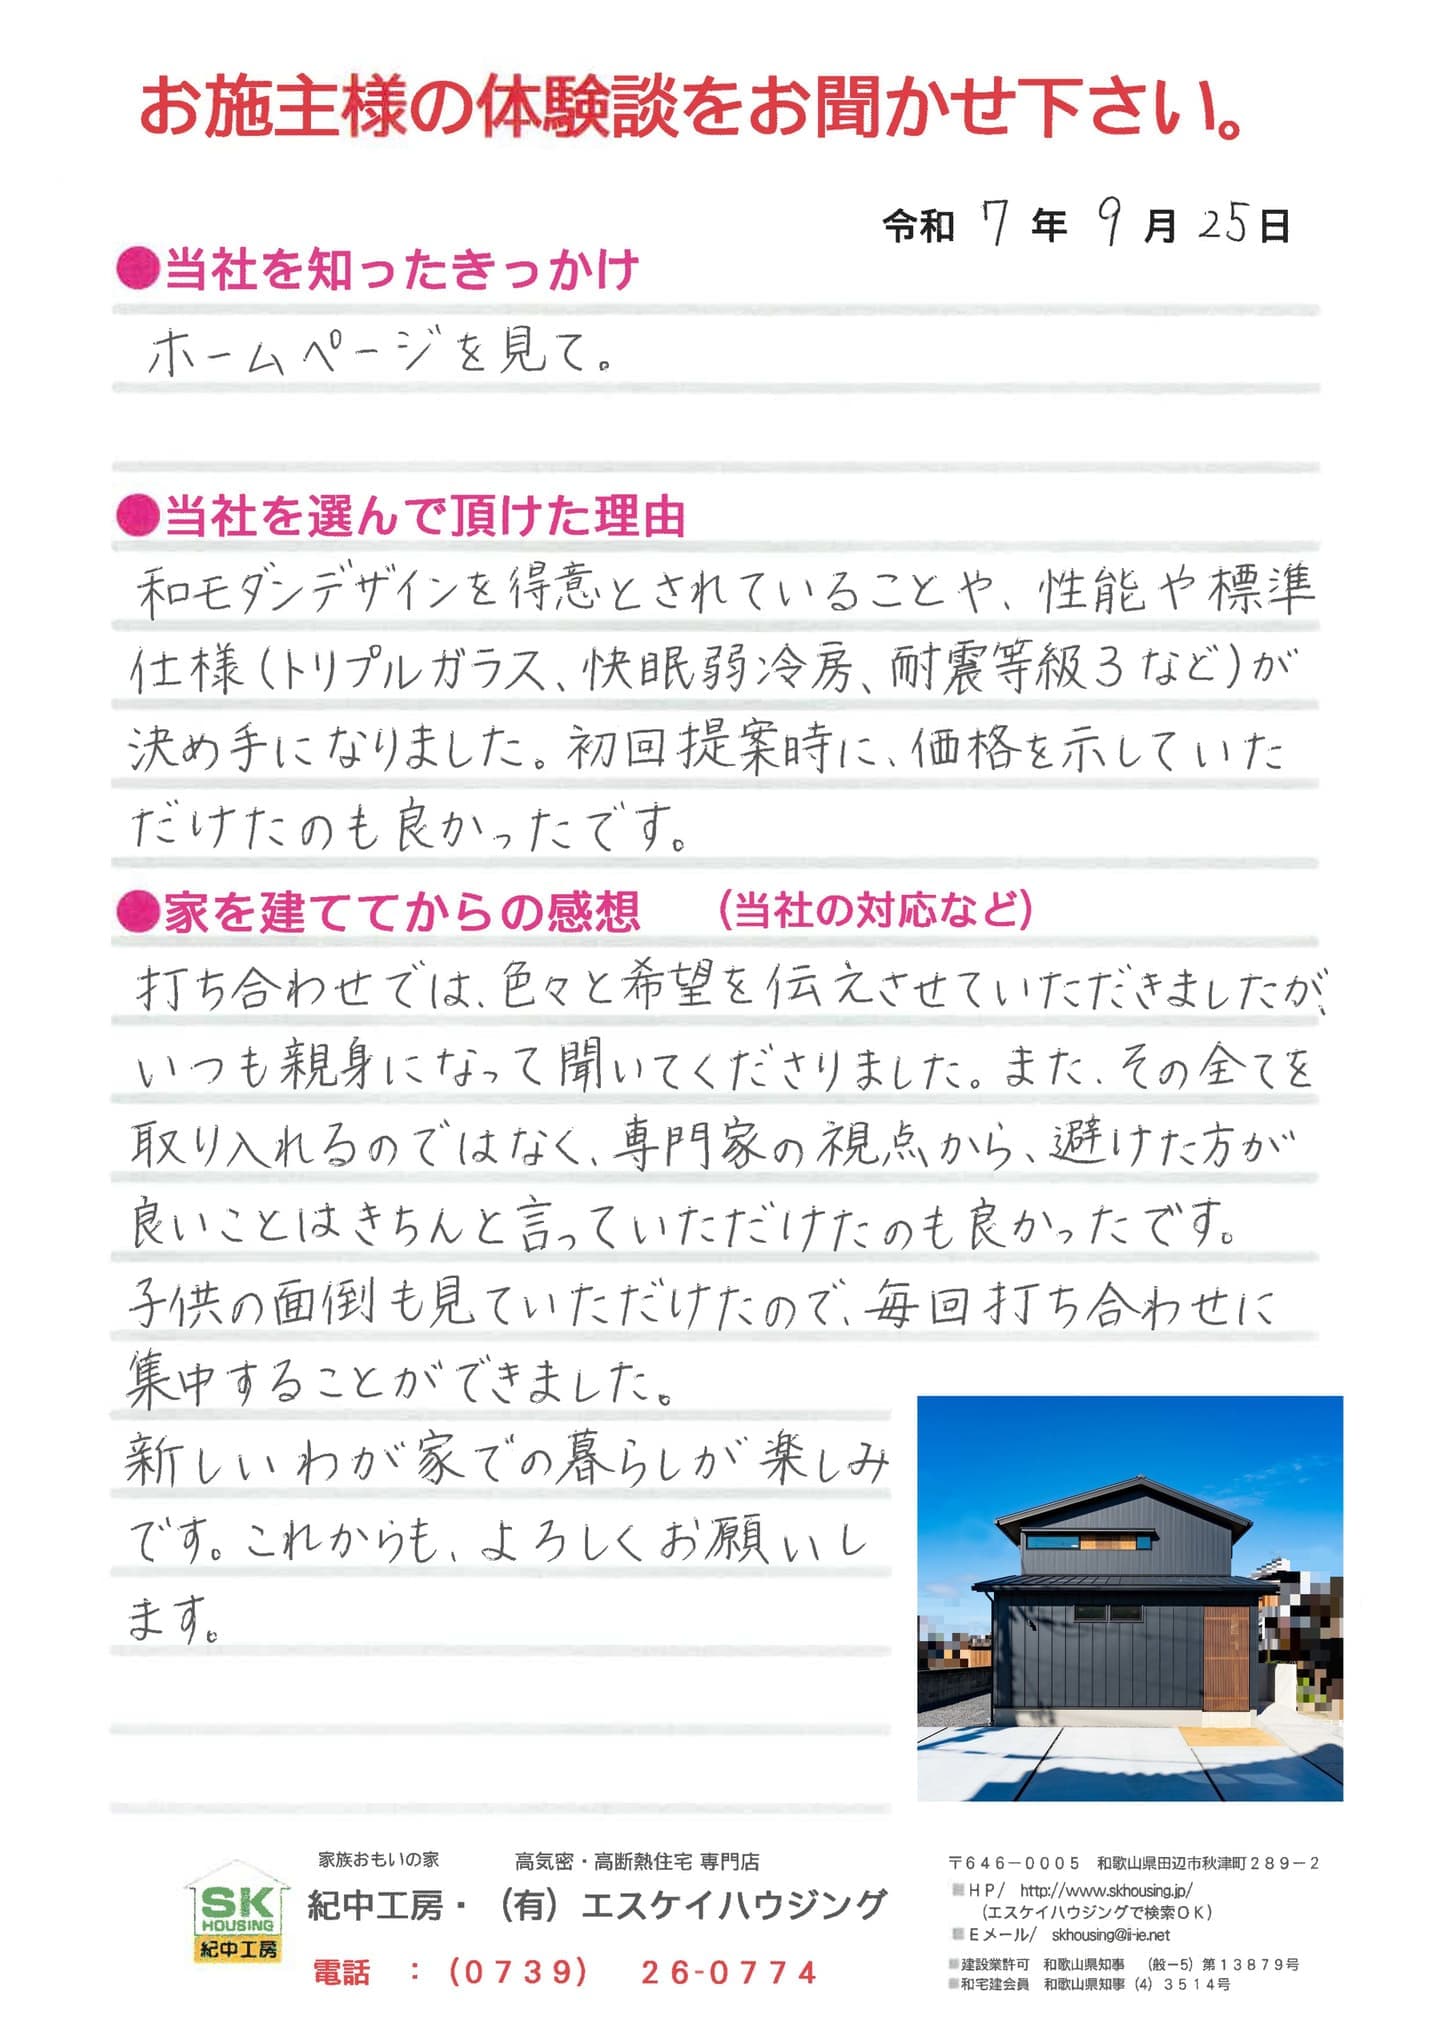 お施主様の体験談をお聞かせ下さい。
令和 7 年 9 月 25日
●当社を知ったきっかけ
ホームページを見て。
●当社を選んで頂けた理由
和モダンデザインを得意とされていることや、性能や標準
仕様(トリプルガラス、快眠弱冷房、耐震等級3など)が
決め手になりました。初回提案時に、価格を示していた
だけたのも良かったです。
●家を建ててからの感想 (当社の対応など)
打ち合わせでは、色々と希望を伝えさせていただきましたが、
いつも親身になって聞いてくださりました。また、その全てを
取り入れるのではなく、専門家の視点から、避けた方が
良いことはきちんと言っていただけたのも良かったです。
子供の面倒も見ていただけたので、毎回打ち合わせに
集中することができました。
新しいわが家での暮らしが楽しみ
です。これからも、よろしくお願いし
ます。
家族おもいの家 高気密・高断熱住宅 専門店
SK
HOUSING
紀中工房
紀中工房・(有)エスケイハウジング
電話 :(0739) 26-0774
〒646-0005 和歌山県田辺市秋津町289-2
■HP/ http://www.skhousing.jp/
(エスケイハウジングで検索OK)
■Eメール/ skhousing@i-ie.net
■建設業許可 和歌山県知事 (般-5)第13879号
■和宅建会員 和歌山県知事(4)3514号